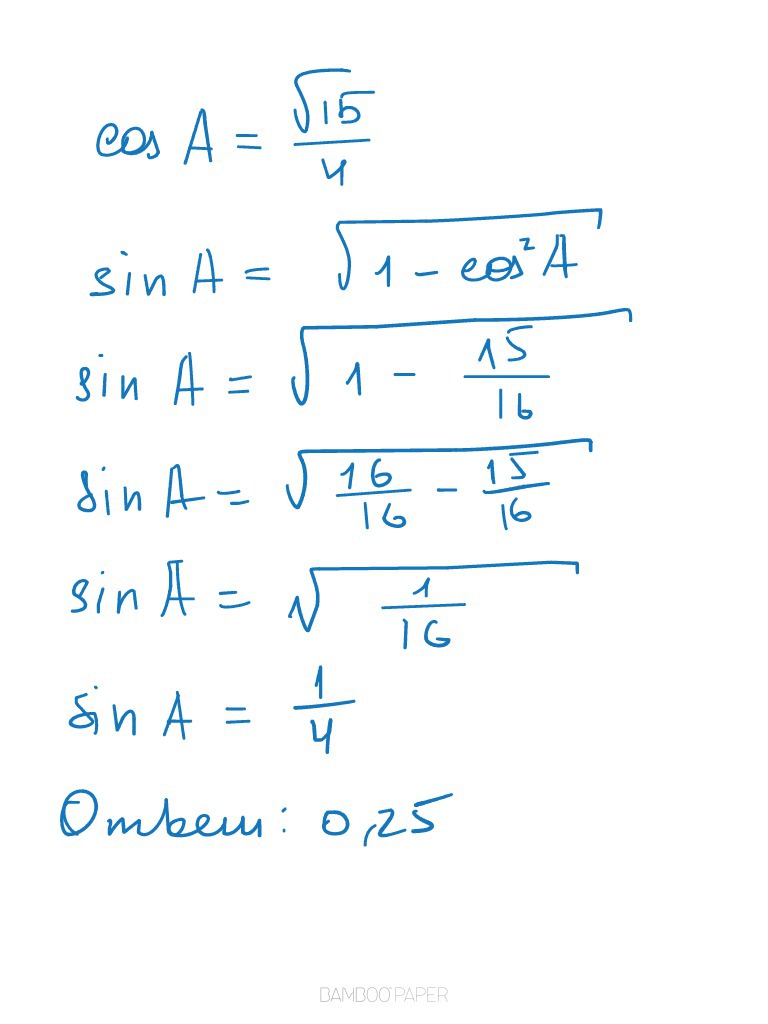 cos A = √15/4
sin A = √(1 - cos²A)
sin A = √(1 - 15/16)
sin A = √(16/16 - 15/16)
sin A = √(1/16)
sin A = 1/4
Ответ: 0,25
BAMBOO PAPER